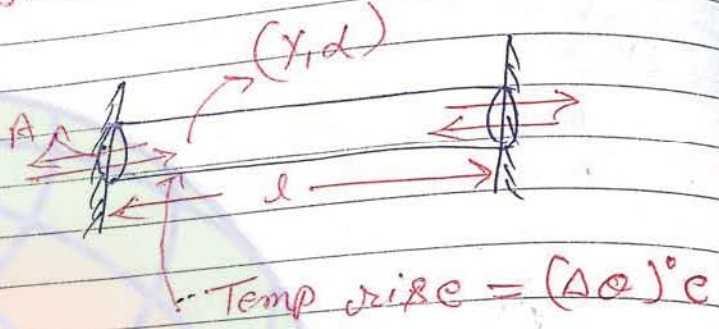 (Y,α)
A
l
Temp rise = (Δθ)°C